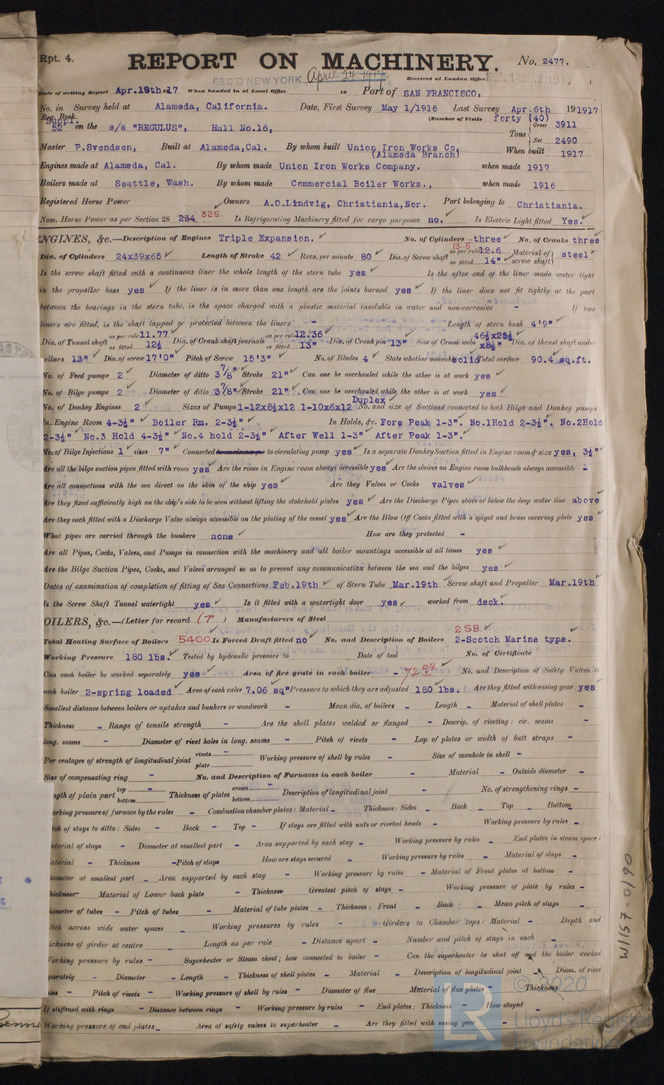 Rpt. 4.
REPORT ON MACHINERY.
No. 2477.
REC'D NEW YORK April 24-1917
Received at London Office
Date of writing Report Apr.18th 17 When handed in at Local Office Port of SAN FRANCISCO,
No. in Survey held at Alameda, California. Date, First Survey May 1/1916 Last Survey Apr.6th 191917
Reg. Book. Suppl. (Number of Visits forty (40)
52 on the s/s "REGULUS", Hull No.16, Tons Gross 3911
Net 2490
Master P.Svendsen, Built at Alameda,Cal. By whom built Union Iron Works Co, (Alameda Branch) When built 1917
Engines made at Alameda, Cal. By whom made Union Iron Works Company. when made 1917
Boilers made at Seattle, Wash. By whom made Commercial Boiler Works., when made 1916
Registered Horse Power Owners A.O.Lindvig, Christiania,Nor. Port belonging to Christiania.
Nom. Horse Power as per Section 28 234 325 Is Refrigerating Machinery fitted for cargo purposes no. Is Electric Light fitted Yes.
ENGINES, &c.—Description of Engines Triple Expansion. No. of Cylinders three No. of Cranks three
Dia. of Cylinders 24x39x65 Length of Stroke 42 Revs. per minute 80 Dia. of Screw shaft as per rule 13.5 12.6 as fitted 14" Material of screw shaft steel
Is the screw shaft fitted with a continuous liner the whole length of the stern tube yes Is the after end of the liner made water tight
in the propeller boss yes If the liner is in more than one length are the joints burned yes If the liner does not fit tightly at the part
between the bearings in the stern tube, is the space charged with a plastic material insoluble in water and non-corrosive - If two
liners are fitted, is the shaft lapped or protected between the liners - Length of stern bush 4'9"
Dia. of Tunnel shaft as per rule 11.77 as fitted 12½ Dia. of Crank shaft journals as per rule 12.36 as fitted 13" Dia. of Crank pin 13" Size of Crank webs 46½x25½ x8½" Dia. of thrust shaft under
collars 13" Dia. of screw 17'0" Pitch of Screw 15'3" No. of Blades 4 State whether moveable solid Total surface 90.4 sq.ft.
No. of Feed pumps 2 Diameter of ditto 3 7/8" Stroke 21" Can one be overhauled while the other is at work yes
No. of Bilge pumps 2 Diameter of ditto 3 7/8" Stroke 21" Can one be overhauled while the other is at work yes
No. of Donkey Engines 2 Sizes of Pumps 1-12x8½x12 1-10x6x12 Duplex No. and size of Suctions connected to both Bilge and Donkey pumps
In Engine Room 4-3½" Boiler Rm. 2-3½" In Holds, &c. Fore Peak 1-3". No.1Hold 2-3½". No.2Hold
2-3½" No.3 Hold 4-3½" No.4 hold 2-3½" After Well 1-3" After Peak 1-3".
No. of Bilge Injections 1 sizes 7" Connected to condenser, or to circulating pump yes Is a separate Donkey Suction fitted in Engine room & size yes, 3½"
Are all the bilge suction pipes fitted with roses yes Are the roses in Engine room always accessible yes Are the sluices on Engine room bulkheads always accessible -
Are all connections with the sea direct on the skin of the ship yes Are they Valves or Cocks valves
Are they fixed sufficiently high on the ship's side to be seen without lifting the stokehold plates yes Are the Discharge Pipes above or below the deep water line above
Are they each fitted with a Discharge Valve always accessible on the plating of the vessel yes Are the Blow Off Cocks fitted with a spigot and brass covering plate yes
What pipes are carried through the bunkers none How are they protected -
Are all Pipes, Cocks, Valves, and Pumps in connection with the machinery and all boiler mountings accessible at all times yes
Are the Bilge Suction Pipes, Cocks, and Valves arranged so as to prevent any communication between the sea and the bilges yes
Dates of examination of completion of fitting of Sea Connections Feb.19th of Stern Tube Mar.19th Screw shaft and Propeller Mar.19th
Is the Screw Shaft Tunnel watertight yes Is it fitted with a watertight door yes worked from deck.
OILERS, &c.—(Letter for record (r) ) Manufacturers of Steel
Total Heating Surface of Boilers 5400 Is Forced Draft fitted no No. and Description of Boilers 2SB 2-Scotch Marine type.
Working Pressure 180 lbs. Tested by hydraulic pressure to Date of test No. of Certificate
Can each boiler be worked separately yes Area of fire grate in each boiler - No. and Description of Safety Valves to
each boiler 2-spring loaded Area of each valve 7.06 sq" Pressure to which they are adjusted 180 lbs. Are they fitted with easing gear yes
Smallest distance between boilers or uptakes and bunkers or woodwork - Mean dia. of boilers - Length - Material of shell plates -
Thickness - Range of tensile strength - Are the shell plates welded or flanged - Descrip. of riveting: cir. seams -
long. seams - Diameter of rivet holes in long. seams - Pitch of rivets - Lap of plates or width of butt straps -
Per centages of strength of longitudinal joint rivets - plate - Working pressure of shell by rules - Size of manhole in shell -
Size of compensating ring - No. and Description of Furnaces in each boiler - Material - Outside diameter -
Length of plain part top - bottom Thickness of plates crown bottom Description of longitudinal joint - No. of strengthening rings -
Working pressure of furnace by the rules - Combustion chamber plates: Material - Thickness: Sides - Back - Top - Bottom
Pitch of stays to ditto: Sides - Back - Top - If stays are fitted with nuts or riveted heads - Working pressure by rules -
Material of stays - Diameter at smallest part - Area supported by each stay - Working pressure by rules - End plates in steam space:
Material - Thickness - Pitch of stays How are stays secured - Working pressure by rules - Material of stays -
Diameter at smallest part - Area supported by each stay - Working pressure by rules - Material of Front plates at bottom -
Thickness - Material of Lower back plate - Thickness Greatest pitch of stays - Working pressure of plate by rules -
Diameter of tubes - Pitch of tubes - Material of tube plates - Thickness: Front - Back - Mean pitch of stays -
Pitch across wide water spaces - Working pressures by rules - Girders to Chamber tops: Material - Depth and
thickness of girder at centre - Length as per rule - Distance apart - Number and pitch of stays in each -
Working pressure by rules - Superheater or Steam chest; how connected to boiler - Can the superheater be shut off and the boiler worked
separately - Diameter - Length - Thickness of shell plates - Material - Description of longitudinal joint - Diam. of rivet
holes - Pitch of rivets - Working pressure of shell by rules - Diameter of flue - Material of flue plates - Thickness
If stiffened with rings - Distance between rings - Working pressure by rules - End plates: Thickness How stayed -
Working pressure of end plates - Area of safety valves to superheater - Are they fitted with easing gear -
W1157-0190
© 2020
LR
Lloyd's Register
Foundation